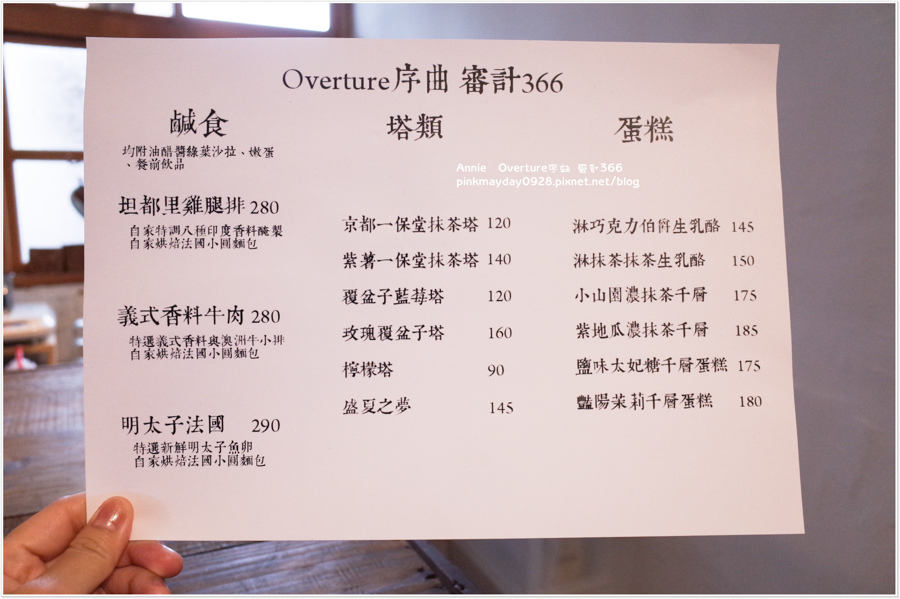 Overture序曲 審計366
鹹食
均附油醋醬綠葉沙拉、嫩蛋
、餐前飲品
坦都里雞腿排 280
自家特調八種印度香料醃製
自家烘焙法國小圓麵包
義式香料牛肉 280
特選義式香料與澳洲牛小排
自家烘焙法國小圓麵包
明太子法國 290
特選新鮮明太子魚卵
自家烘焙法國小圓麵包
塔類
京都一保堂抹茶塔 120
紫薯一保堂抹茶塔 140
覆盆子藍莓塔 120
玫瑰覆盆子塔 160
檸檬塔 90
盛夏之夢 145
蛋糕
淋巧克力伯爵生乳酪 145
淋抹茶抹茶生乳酪 150
小山園濃抹茶千層 175
紫地瓜濃抹茶千層 185
鹽味太妃糖千層蛋糕 175
豔陽茉莉千層蛋糕 180
Annie Overture序曲 審計366
pinkmayday0928.pixnet.net/blog